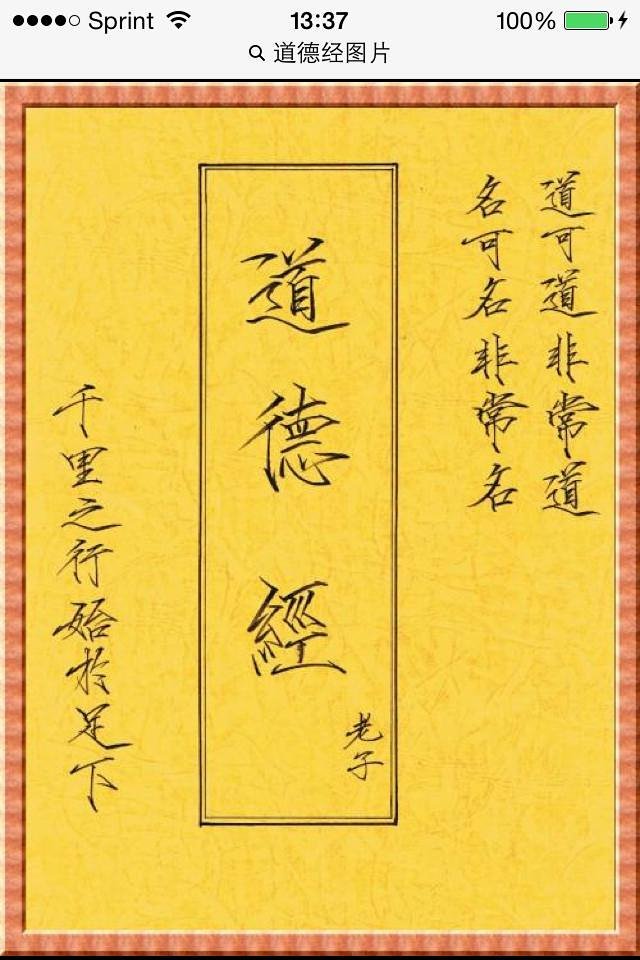 Sprint 13:37 100%
道德经图片
道可道非常道
名可名非常名
道德經
老子
千里之行始於足下